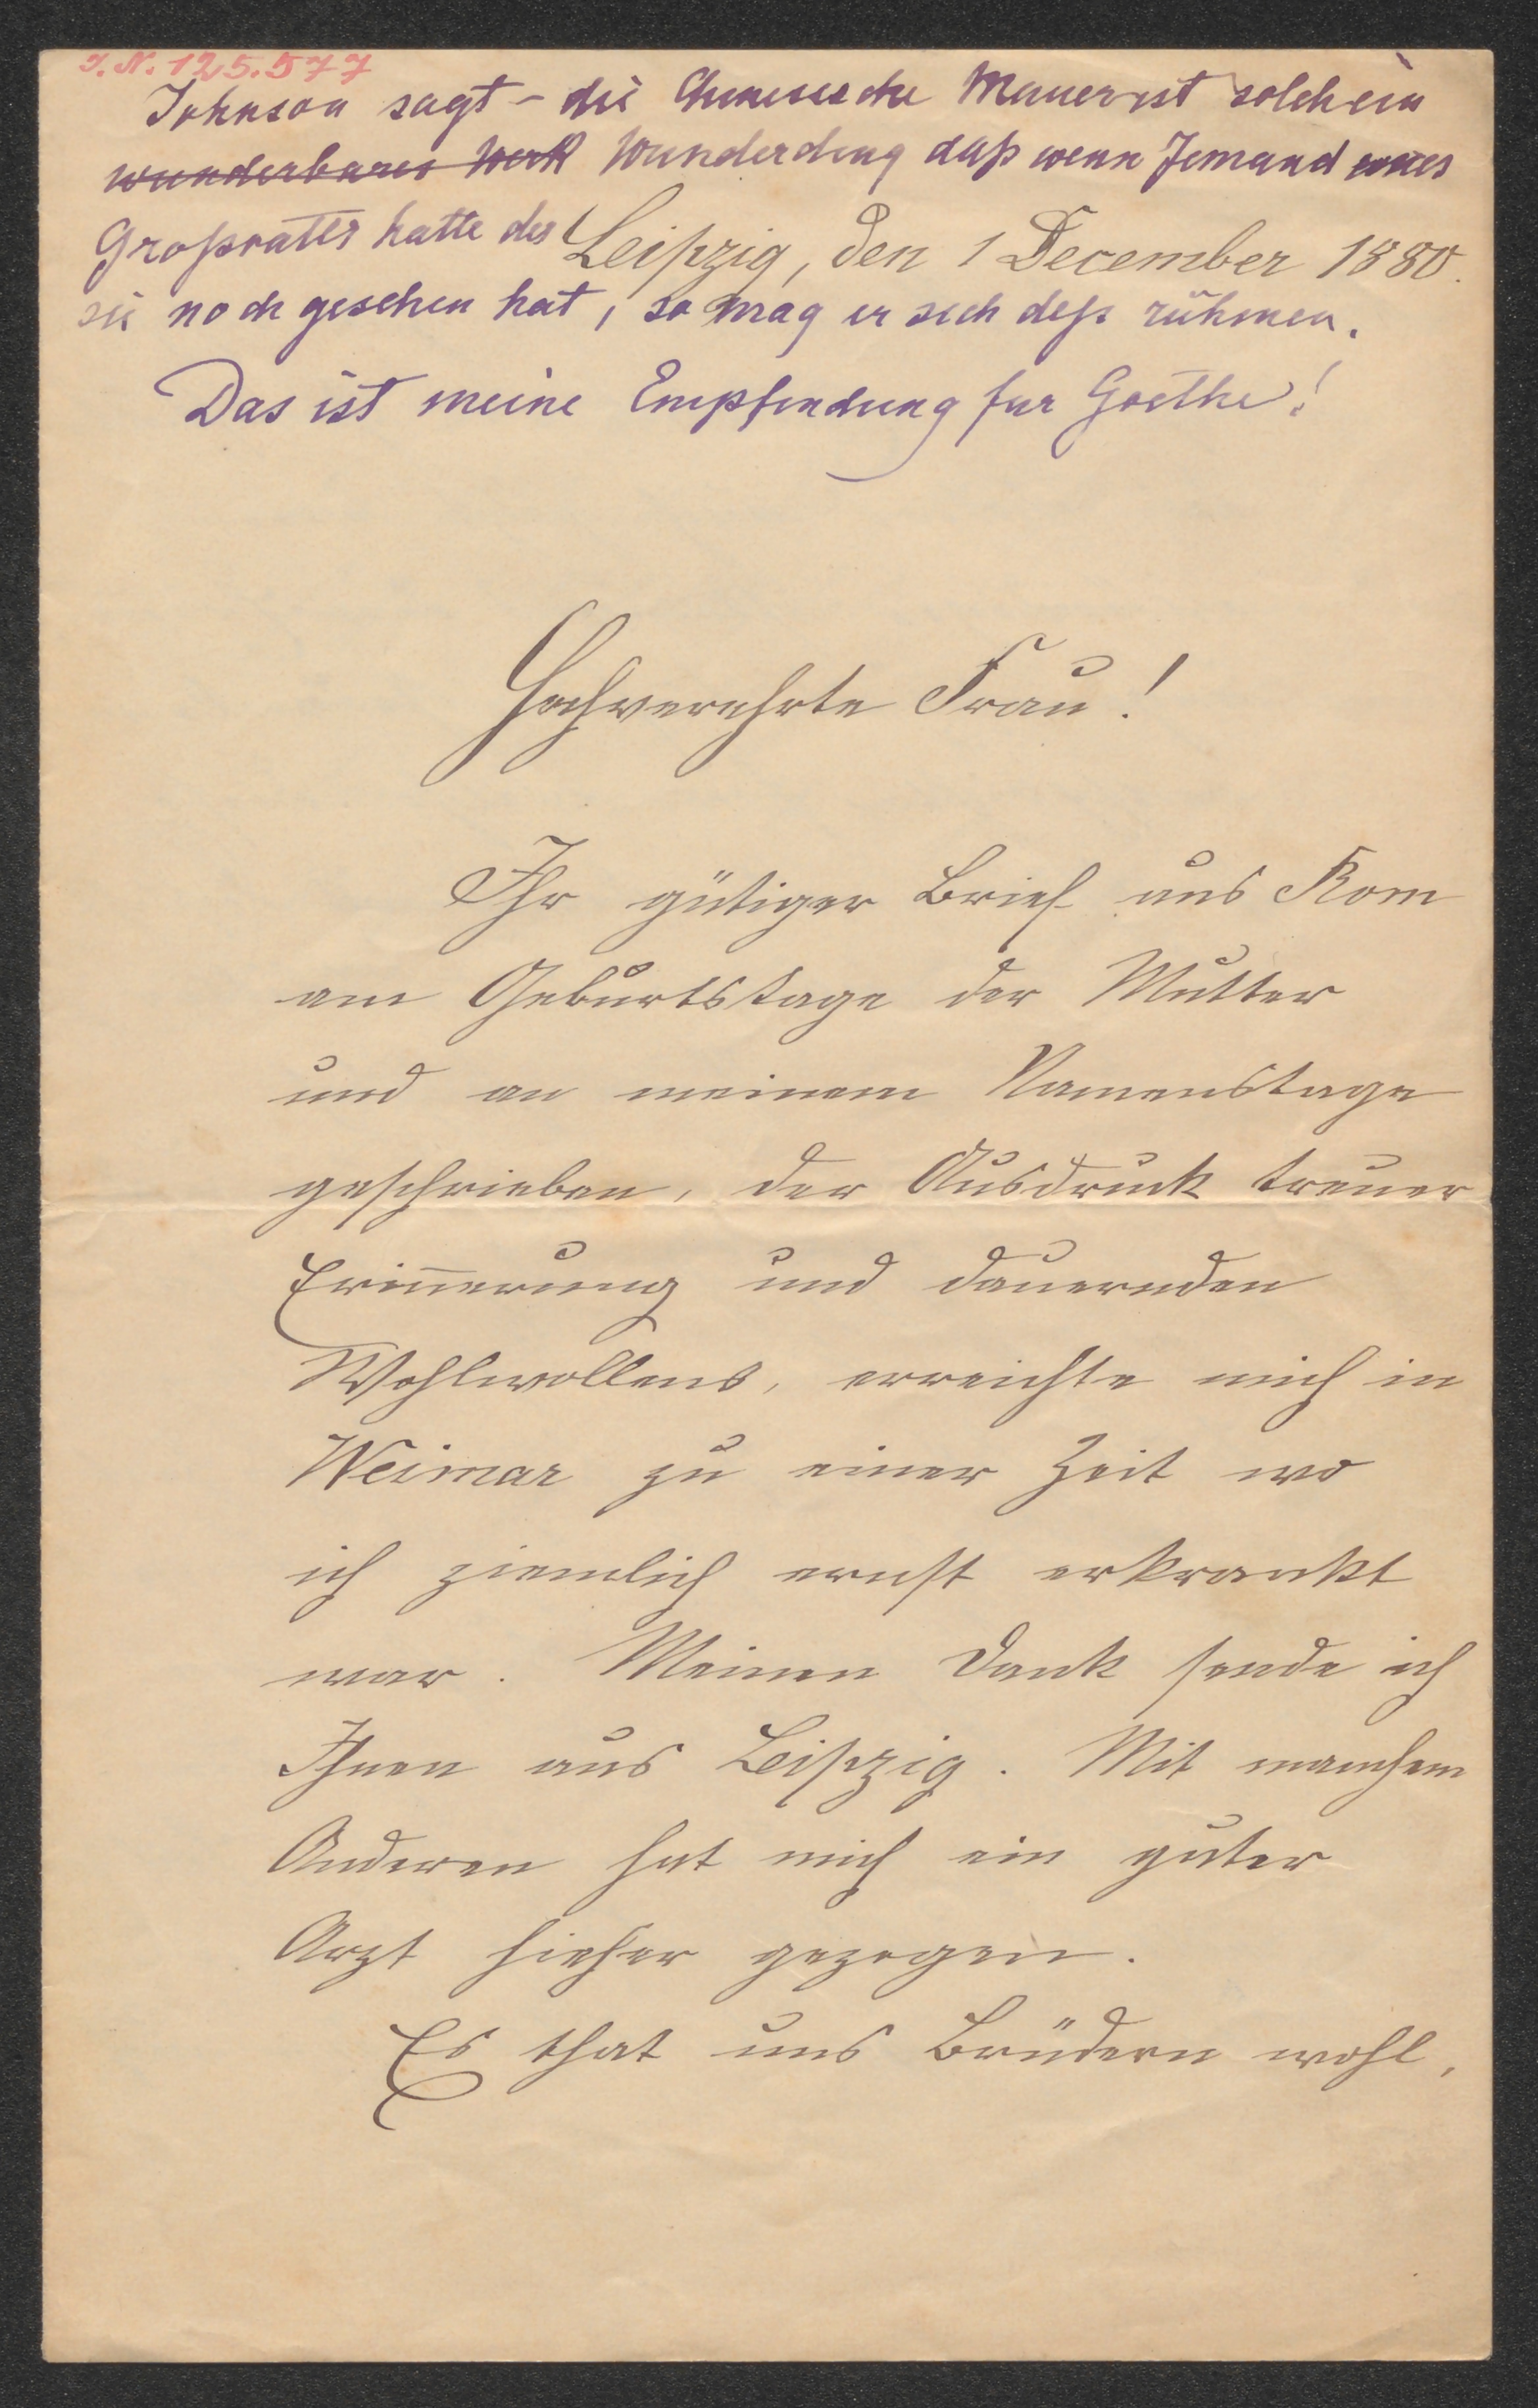 I.N. 125.577
Johnson sagt – die Chinesische Mauer ist solch ein
wunderbares Werk Wunderding daß wenn Jemand eines
Großvater hatte der
Leipzig, den 1 December 1880.
sie noch gesehen hat, so mag er sich deß rühmen.
Das ist meine Empfindung fur Goethe!
Hochverehrte Frau!
Ihr gütiger Brief aus Rom
am Geburtstage der Mutter
und an meinem Namenstage
geschrieben, der Ausdruck treuer
Erin̄erung und dauernden
Wohlwollens, erreichte mich in
Weimar zu einer Zeit wo
ich ziemlich ernst erkrankt
war. Meinen Dank sende ich
Ihnen aus Leipzig. Mit manchem
Anderen hat mich ein guter
Arzt hieher gezogen.
Es that uns Brüdern wohl,